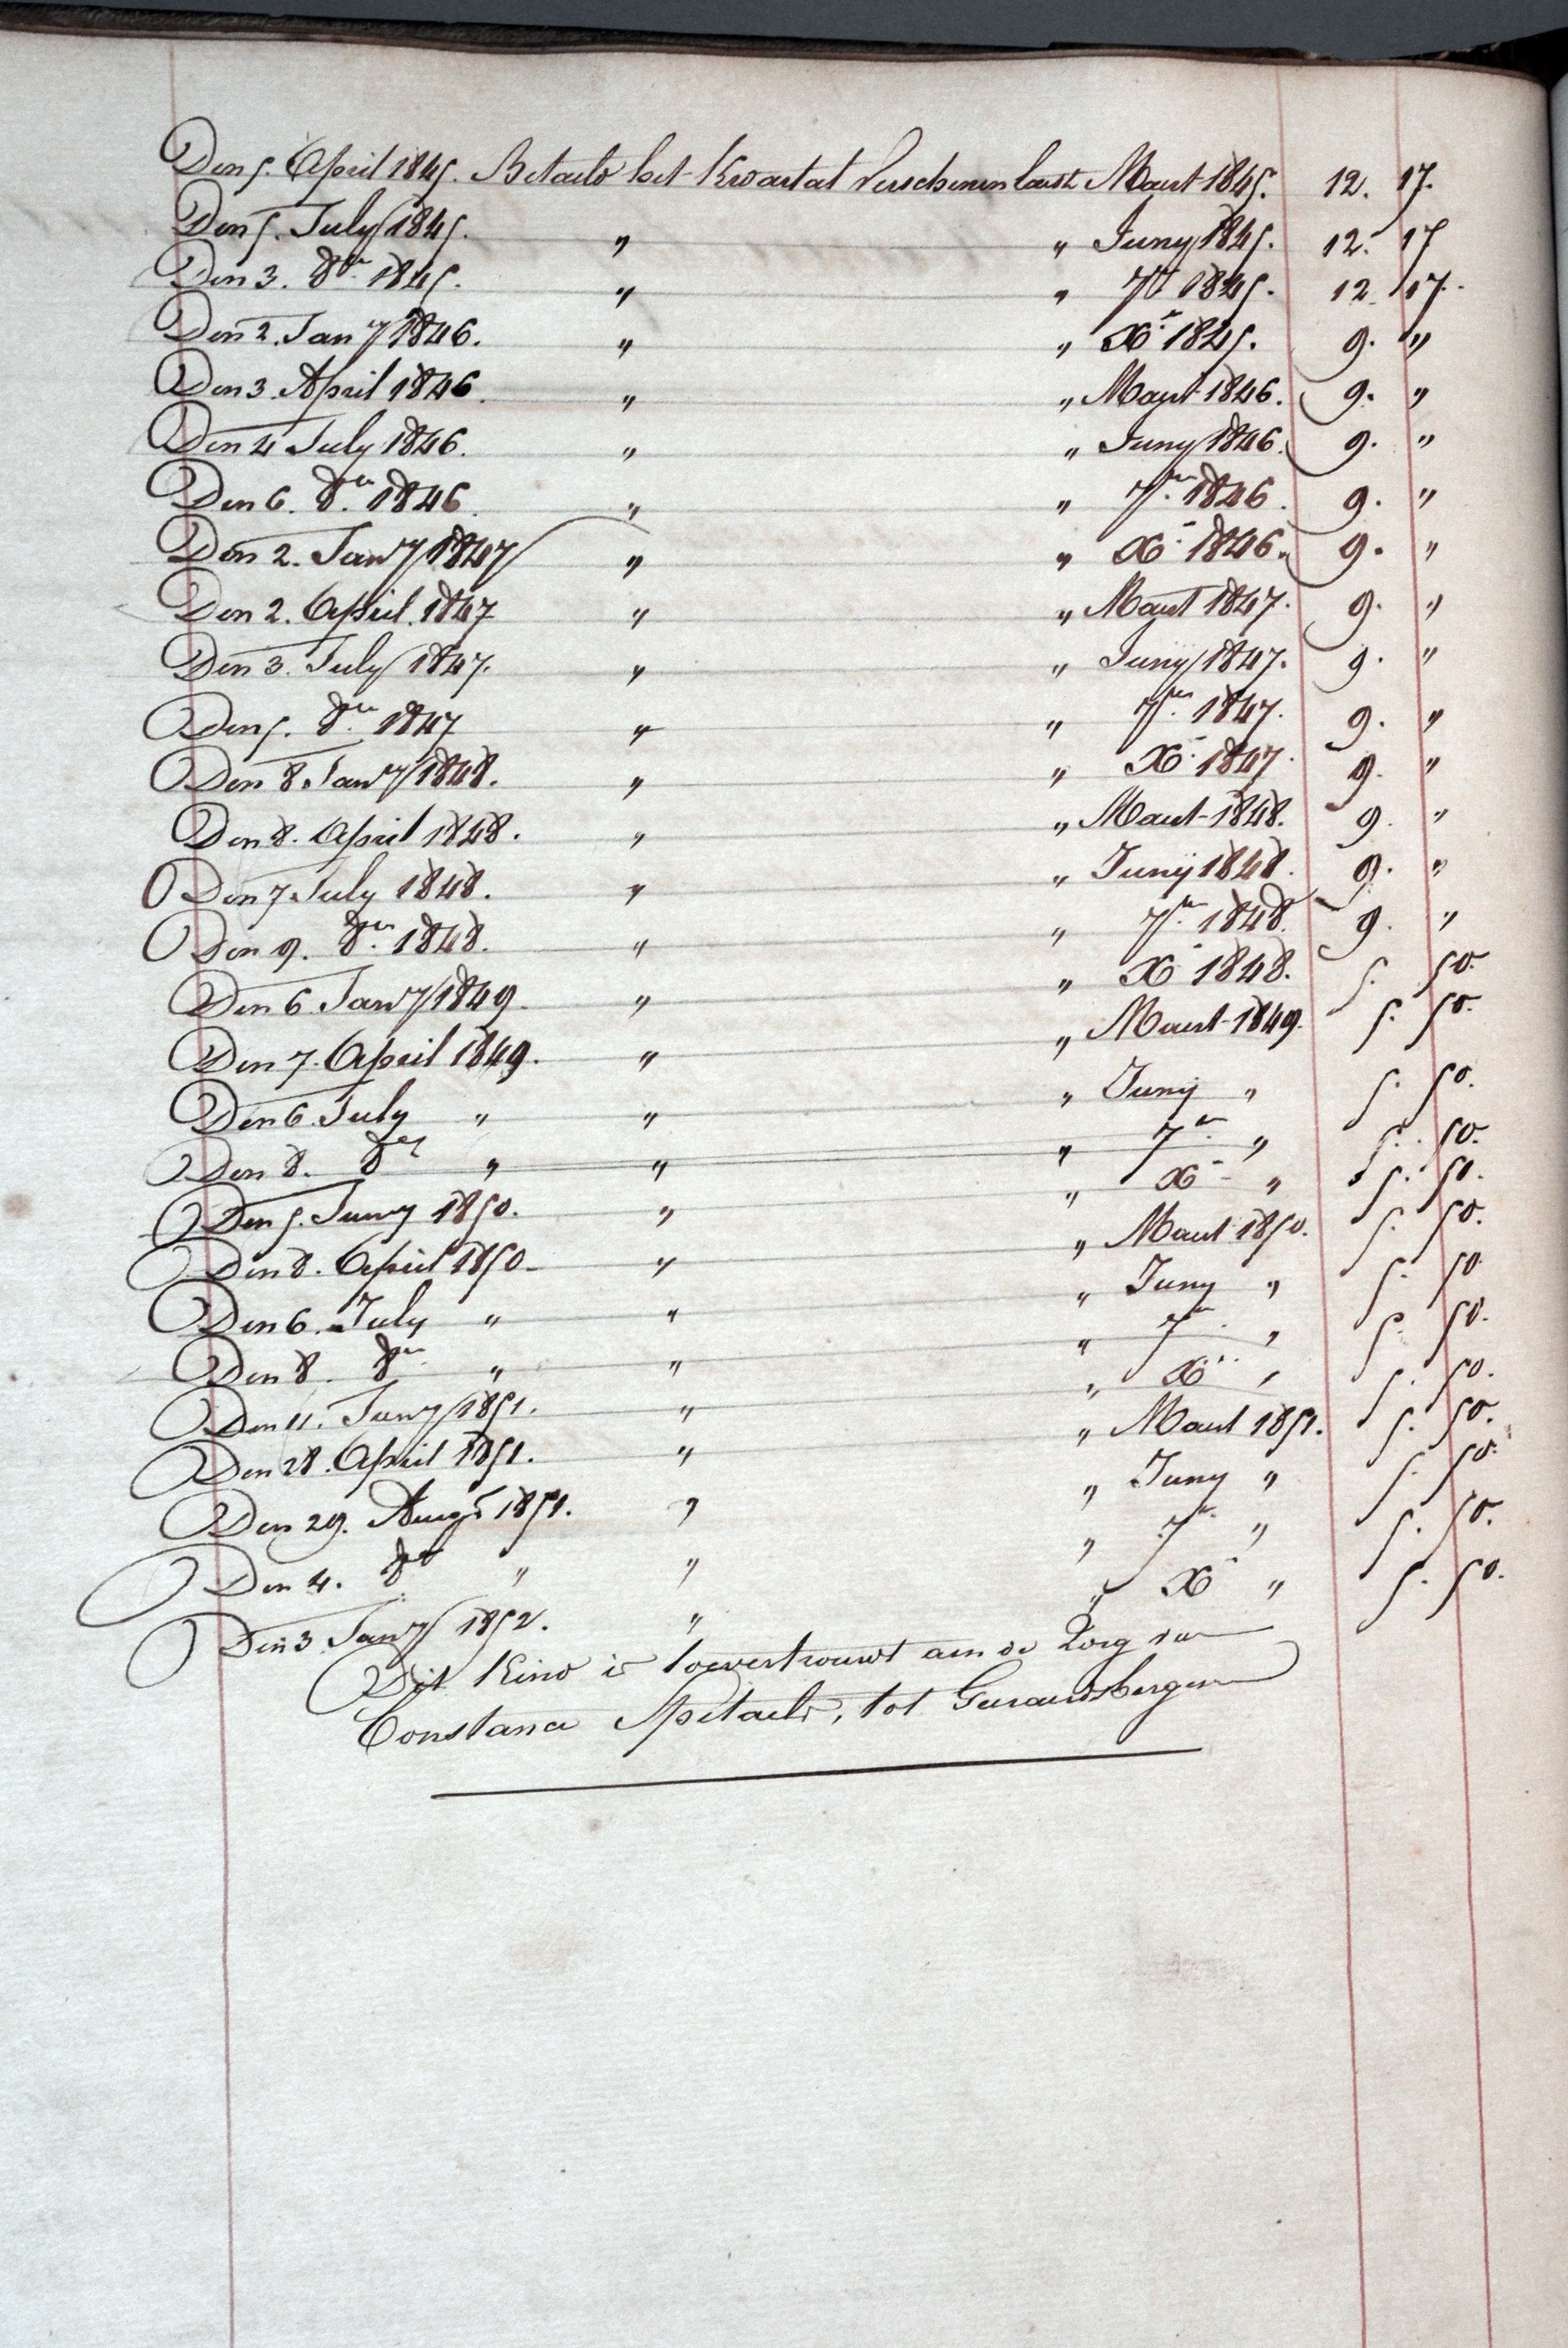 Den 5. April 1845. Betaeld het Kwartal Verschenen laest Maert 1845. 12. 17.
Den 5. July 1845. " " Juny 1845. 12. 17
Den 3. 8er 1845. " " 7er 1845. 12. 17.
Den 2. Jany 1846. " " Xr 1845. 9. "
Den 3. April 1846. " " Maert 1846. 9. "
Den 4 July 1846. " " Juny 1846. 9. "
Den 6. 8er 1846. " " 7er 1846. 9. "
Den 2. Jany 1847 " " Xr 1846. 9. "
Den 2. April. 1847 " " Maert 1847. 9. "
Den 3. July 1847. " " Juny 1847. 9. "
Den 5. 8er 1847 " " 7er 1847. 9. "
Den 8. Jany 1848. " " Xr 1847. 9. "
Den 8. April 1848. " " Maert 1848. 9. "
Den 7 July 1848. " " Juny 1848. 9. "
Den 9. 8er 1848. " " 7er 1848. 9. "
Den 6 Jany 1849. " " Xr 1848. 5. 50.
Den 7. April 1849. " " Maert 1849. 5. 50.
Den 6. July " " " Juny " 5. 50.
Den 8. 8er " " " 7er " 5. 50.
Den 5. Jany 1850. " " Xr " 5. 50.
Den 8. April 1850 " " Maert 1850. 5. 50.
Den 6. July " " " Juny " 5. 50
Den 8. 8er " " " 7er " 5. 50.
Den 11. Jany 1851. " " Xr " 5. 50.
Den 28. April 1851. " " Maert 1851. 5. 50.
Den 29. Augt 1851. " " Juny " 5. 50.
Den 4. 8er " " " 7er " 5. 50.
Den 3 Jany 1852. " " Xr " 5. 50.
Dit Kind is toevertrouwt aen de Zorg van
Constance Spitaels, tot Geeraerdsbergen